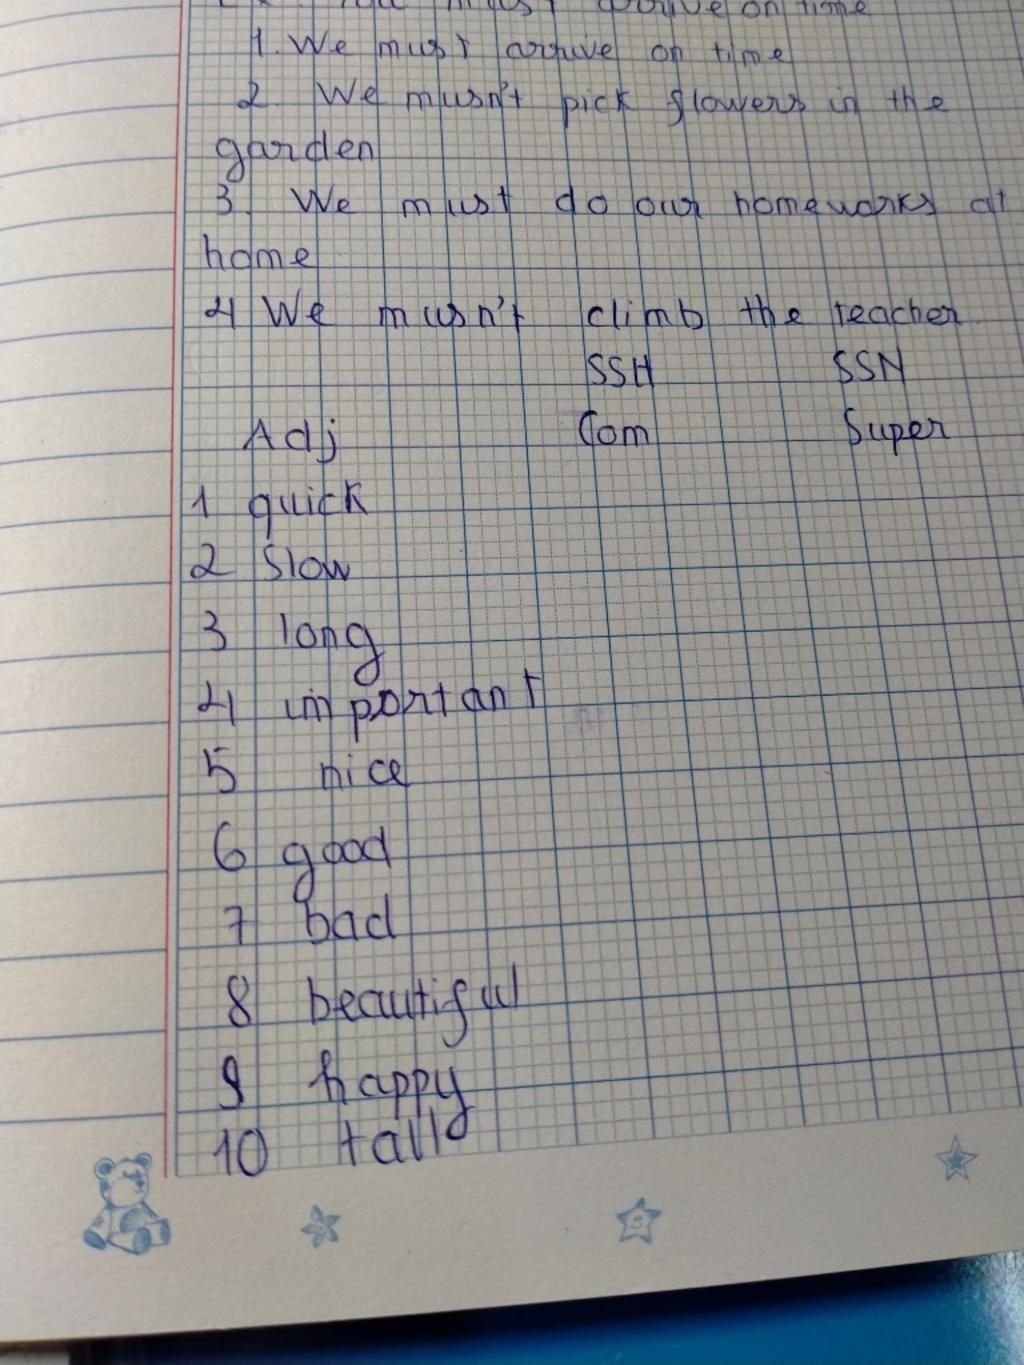 must arrive on time
1. We must arrive on time
2. We musn't pick flowers in the
garden
3. We must do our homeworks at
home
4 We musn't climb the teacher
SSH SSN
Adj Com Super
1 quick
2 Slow
3 long
4 important
5 nice
6 good
7 bad
8 beautiful
9 happy
10 tall